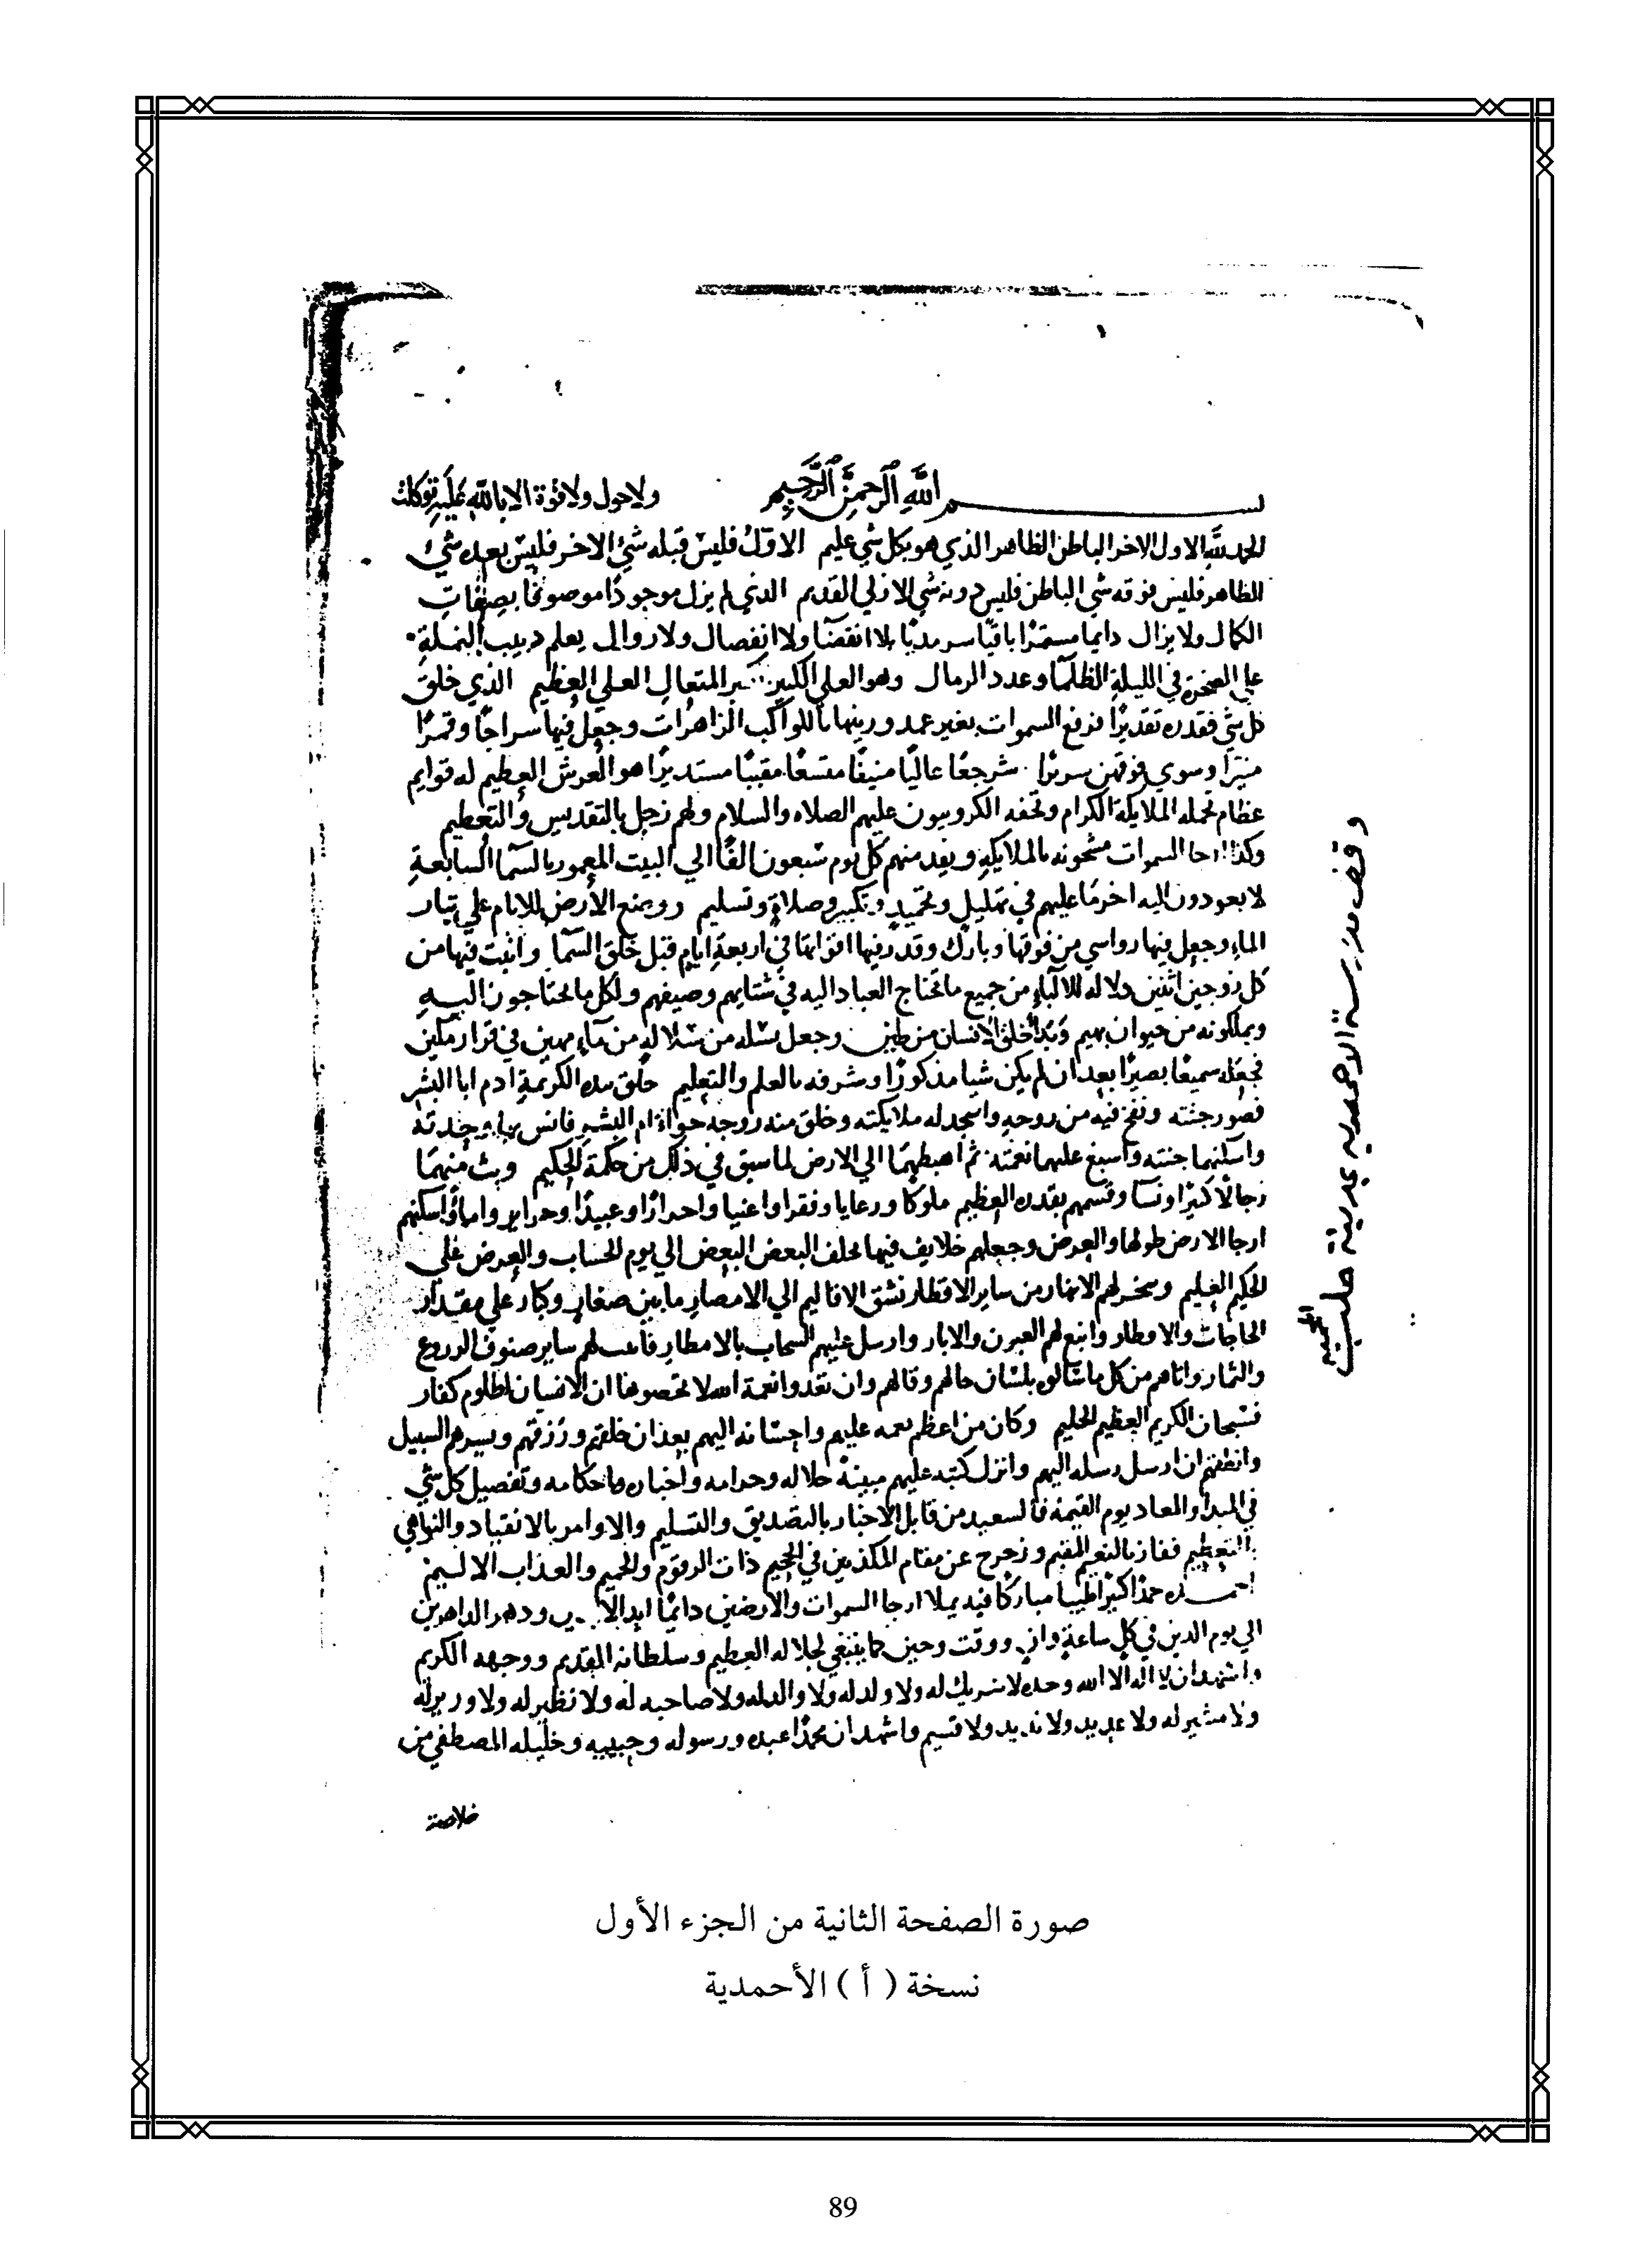 بسم الله الرحمن الرحيم ولا حول ولا قوة الا بالله عليه توكلت
الحمد لله الاول الاخر الباطن الظاهر الذي هو بكل شي عليم الاول فليس قبله شئ الاخر فليس بعده شئ
الظاهر فليس فوقه شي الباطن فليس دونه شي الازلي القديم الذي لم يزل موجودا موصوفا بصفات
الكمال ولا يزال دايما مستمرا باقيا سرمديا بلا انقضا ولا انفصال ولا زوال يعلم دبيب النملة
علي الصخرة في الليلة الظلما وعدد الرمال وهو العلي الكبير المتعال العلي العظيم الذي خلق
كل شي فقدره تقديرا ورفع السموات بغير عمد وزينها بالكواكب الزاهرات وجعل فيها سراجا وقمرا
منيرا وسوي فوقهن سريرا شرجعا عاليا منيفا متسعا مقببا مستديرا هو العرش العظيم له قوايم
عظام تحمله الملايكة الكرام وتحفه الكروبيون عليهم الصلاه والسلام ولهم زجل بالتقديس والتعظيم
وكذا ارجا السموات مشحونه بالملايكة ويفد منهم كل يوم سبعون الفا الي البيت المعمور بالسما السابعة
لا يعودون اليه اخر ما عليهم في تهليل وتحميد وتكبير وصلاة وتسليم ووضع الأرض للانام علي تيار
الماء وجعل فيها رواسي من فوقها وبارك وقدر فيها اقواتها في اربعة ايام قبل خلق السما وانبت فيها من
كل زوجين اثنين ولاله للالباء من جميع ما تحتاج العباد اليه في شتايهم وصيفهم ولكل ما يحتاجون اليه
ويملكونه من حيوان بهيم وبدأ خلق الانسان من طين وجعل نسله من سلالة من ماء مهين في قرار مكين
فجعله سميعا بصيرا بعد ان لم يكن شيا مذكورا وشرفه بالعلم والتعليم خلق بيده الكريمة ادم ابا البشر
فصور جثته ونفخ فيه من روحه واسجد له ملايكته وخلق منه زوجه حواء ام البشر فانس بها وحدته
واسكنهما جنته واسبغ عليهما نعمته ثم اهبطهما الي الارض لما سبق في ذلك من حكمة الحكيم وبث منهما
رجالا كثيرا ونسا وقسمهم بقدره العظيم ملوكا ورعايا وفقرا واغنيا واحرارا وعبيدا وحراير واماء واسكنهم
ارجا الارض طولها والعرض وجعلهم خلايف فيها يخلف البعض البعض الي يوم الحساب والعرض علي
الحكيم العليم وسخر لهم الانهار من ساير الاقطار تشق الاقاليم الي الامصار ما بين صغار وكبار علي مقدار
الحاجات والاوطار وانبع لهم العيون والابار وارسل عليهم السحاب بالامطار فانبت لهم ساير صنوف الزروع
والثمار واتاهم من كل ما سالوه بلسان حالهم وقالهم وان تعدوا نعمة الله لا تحصوها ان الانسان لظلوم كفار
فسبحان الكريم العظيم الحليم وكان من اعظم نعمه عليهم واحسانه اليهم بعد ان خلقهم ورزقهم ويسر لهم السبيل
وانطقهم ان ارسل رسله اليهم وانزل كتبه عليهم مبينة حلاله وحرامه واخباره واحكامه وتفصيل كل شي
في المبدا والمعاد يوم القيمة فالسعيد من قابل الاخبار بالتصديق والتسليم والاوامر بالانقياد والنواهي
بالتعظيم ففاز بالنعيم المقيم وزحزح عن مقام المكذبين في الجحيم ذات الزقوم والحميم والعذاب الاليم
احمده حمدا كثيرا طيبا مباركا فيه يملا ارجا السموات والارضين دائما ابد ودهر الداهرين
الي يوم الدين في كل ساعة وان ووقت وحين كما ينبغي لجلاله العظيم وسلطانه القديم ووجهه الكريم
واشهد ان لا اله الا الله وحده لا شريك له ولا ولد له ولا والد له ولا صاحبه له ولا نظير له ولا وزير له
ولا مشير له ولا عديد ولا نديد ولا قسيم واشهد ان محمدا عبده ورسوله وحبيبه وخليله المصطفي من
خلاصة
وقف مدرسة الاحمديه بمدينة حلب
المحميه
صورة الصفحة الثانية من الجزء الأول
نسخة ( أ ) الأحمدية
89